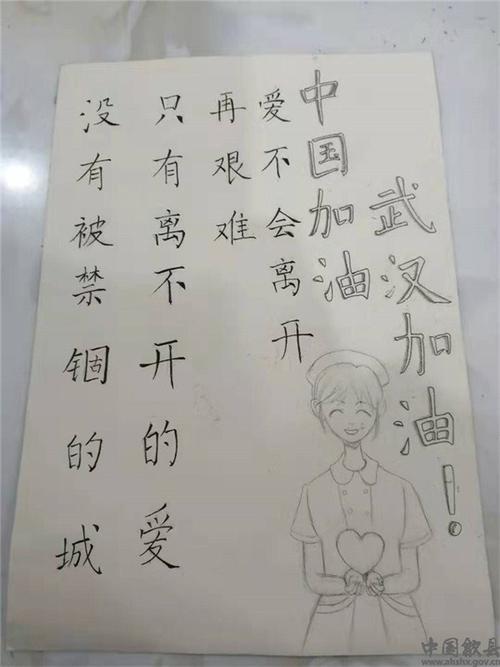 没有被禁锢的城
只有离不开的爱
再艰难
爱不会离开
中国加油
武汉加油!
中国歙县
www.ahshx.gov.cn